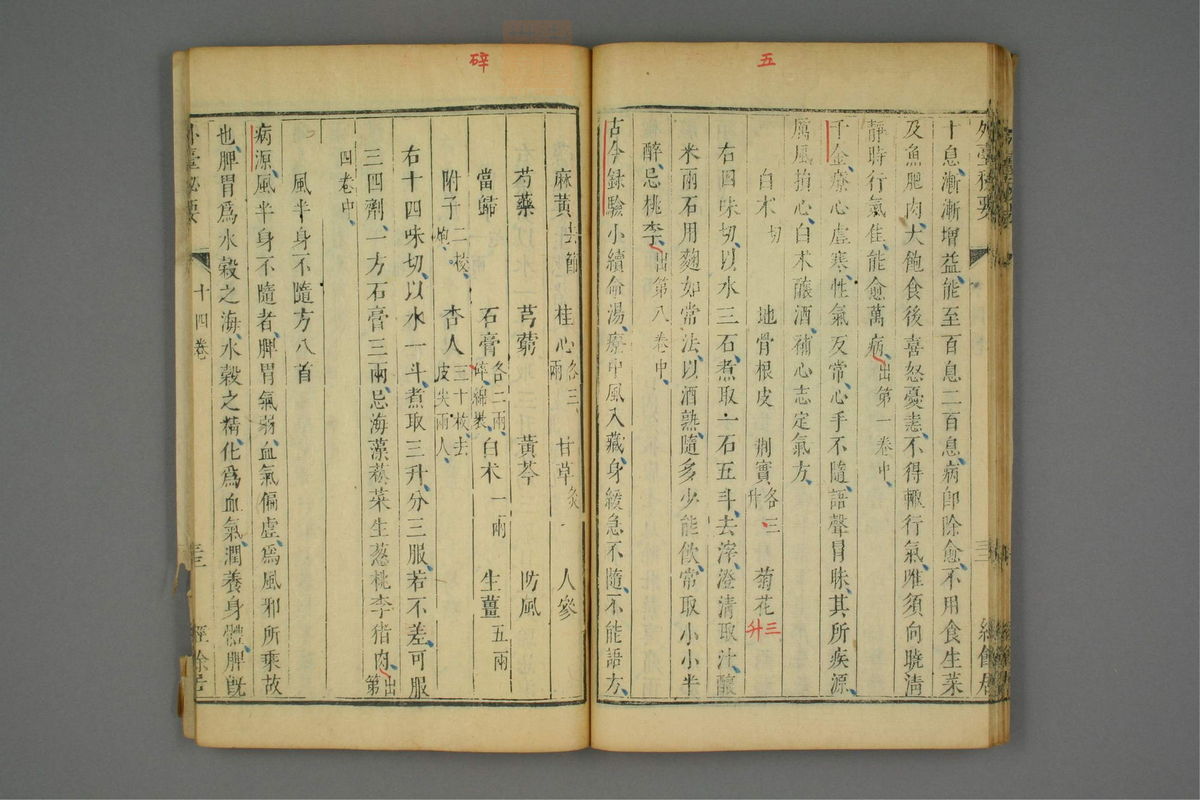 五
十息漸漸增益能至百息二百息病即除愈不用食生菜
及魚肥肉大飽食後喜怒憂恚不得輙行氣唯須向曉清
靜時行氣佳能愈萬病出第一卷中
千金療心虛寒性氣反常心手不隨語聲冒昧其所疾源
厲風損心白朮釀酒補心志定氣方
白朮切 地骨根皮 荊實各三升 菊花三升
右四味切以水三石煮取一石五斗去滓澄清取汁釀
米兩石用麴如常法以酒熟隨多少能飲常取小小半
醉忌桃李出第八卷中
古今録驗小續命湯療中風入藏身緩急不隨不能語方
碎
麻黃去節 桂心各三兩 甘草炙 人參
芍藥 芎藭 黃芩 防風
當歸 石膏各二兩碎綿裹 白朮一兩 生薑五兩
附子二枚炮 杏人三十枚去皮尖兩人
右十四味切以水一斗煮取三升分三服若不差可服
三四劑一方石膏三兩忌海藻菘菜生葱桃李猪肉出第
四卷中
風半身不隨方八首
病源風半身不隨者脾胃氣弱血氣偏虛爲風邪所乘故
也脾胃爲水穀之海水穀之精化爲血氣潤養身體脾旣
外臺秘要 十四卷 經餘居